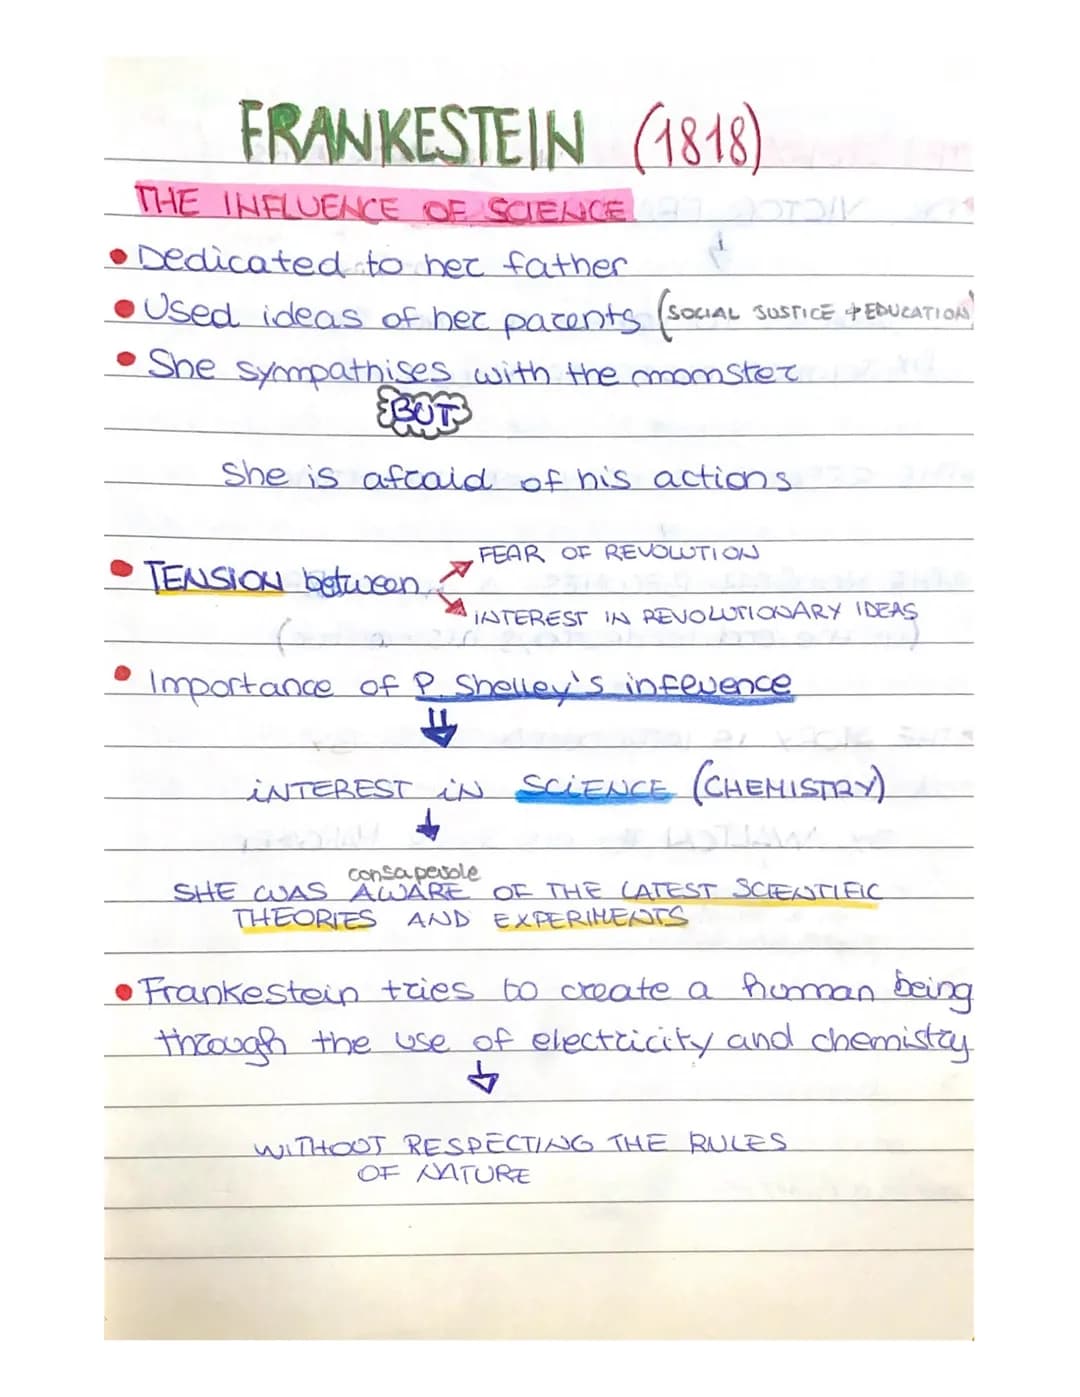 FRANKESTEIN (1818)
THE INFLUENCE OF SCIENCE
• Dedicated to her father
• Used ideas of her parents (SOCIAL JUSTICE + EDUCATION)
• She sympathises with the momster
BUT
She is afraid of his actions
FEAR OF REVOLUTION
• TENSION between
INTEREST IN REVOLUTIONARY IDEAS
• Importance of P. Shelley's infeuence
INTEREST IN SCIENCE (CHEMISTRY)
consapevole
SHE WAS AWARE OF THE LATEST SCIENTIFIC
THEORIES AND EXPERIMENTS
• Frankestein tries to create a human being
through the use of electricity and chemistry
WITHOUT RESPECTING THE RULES
OF NATURE